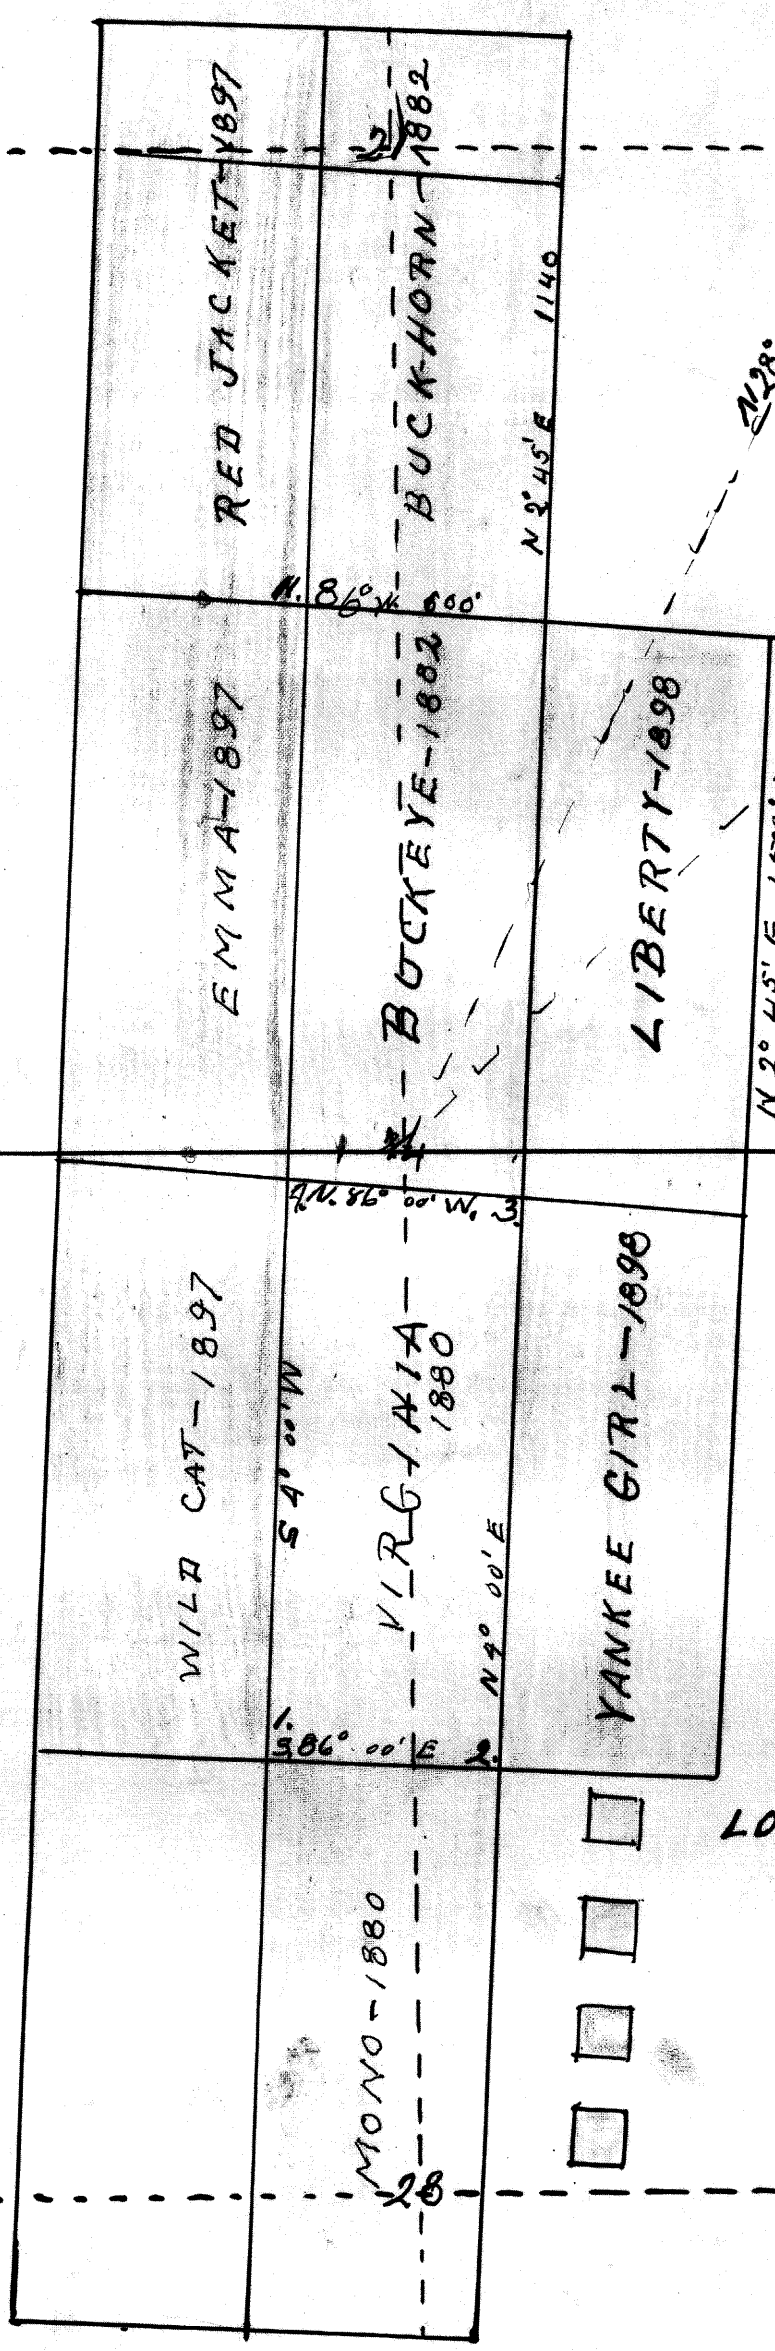 RED JACKET-1897
BUCK-HORN-1882
N 2° 45' E 1140
N28°
N. 86° W 600'
EMMA-1897
BUCKEYE-1882
LIBERTY-1898
N 2° 45' E
N. 86° 00' W. 3.
WILD CAT-1897
S 4° 00' W
VIRGINIA
1880
N 4° 00' E
YANKEE GIRL-1898
1.
S86° 00' E 2.
LO
MONO-1880
28